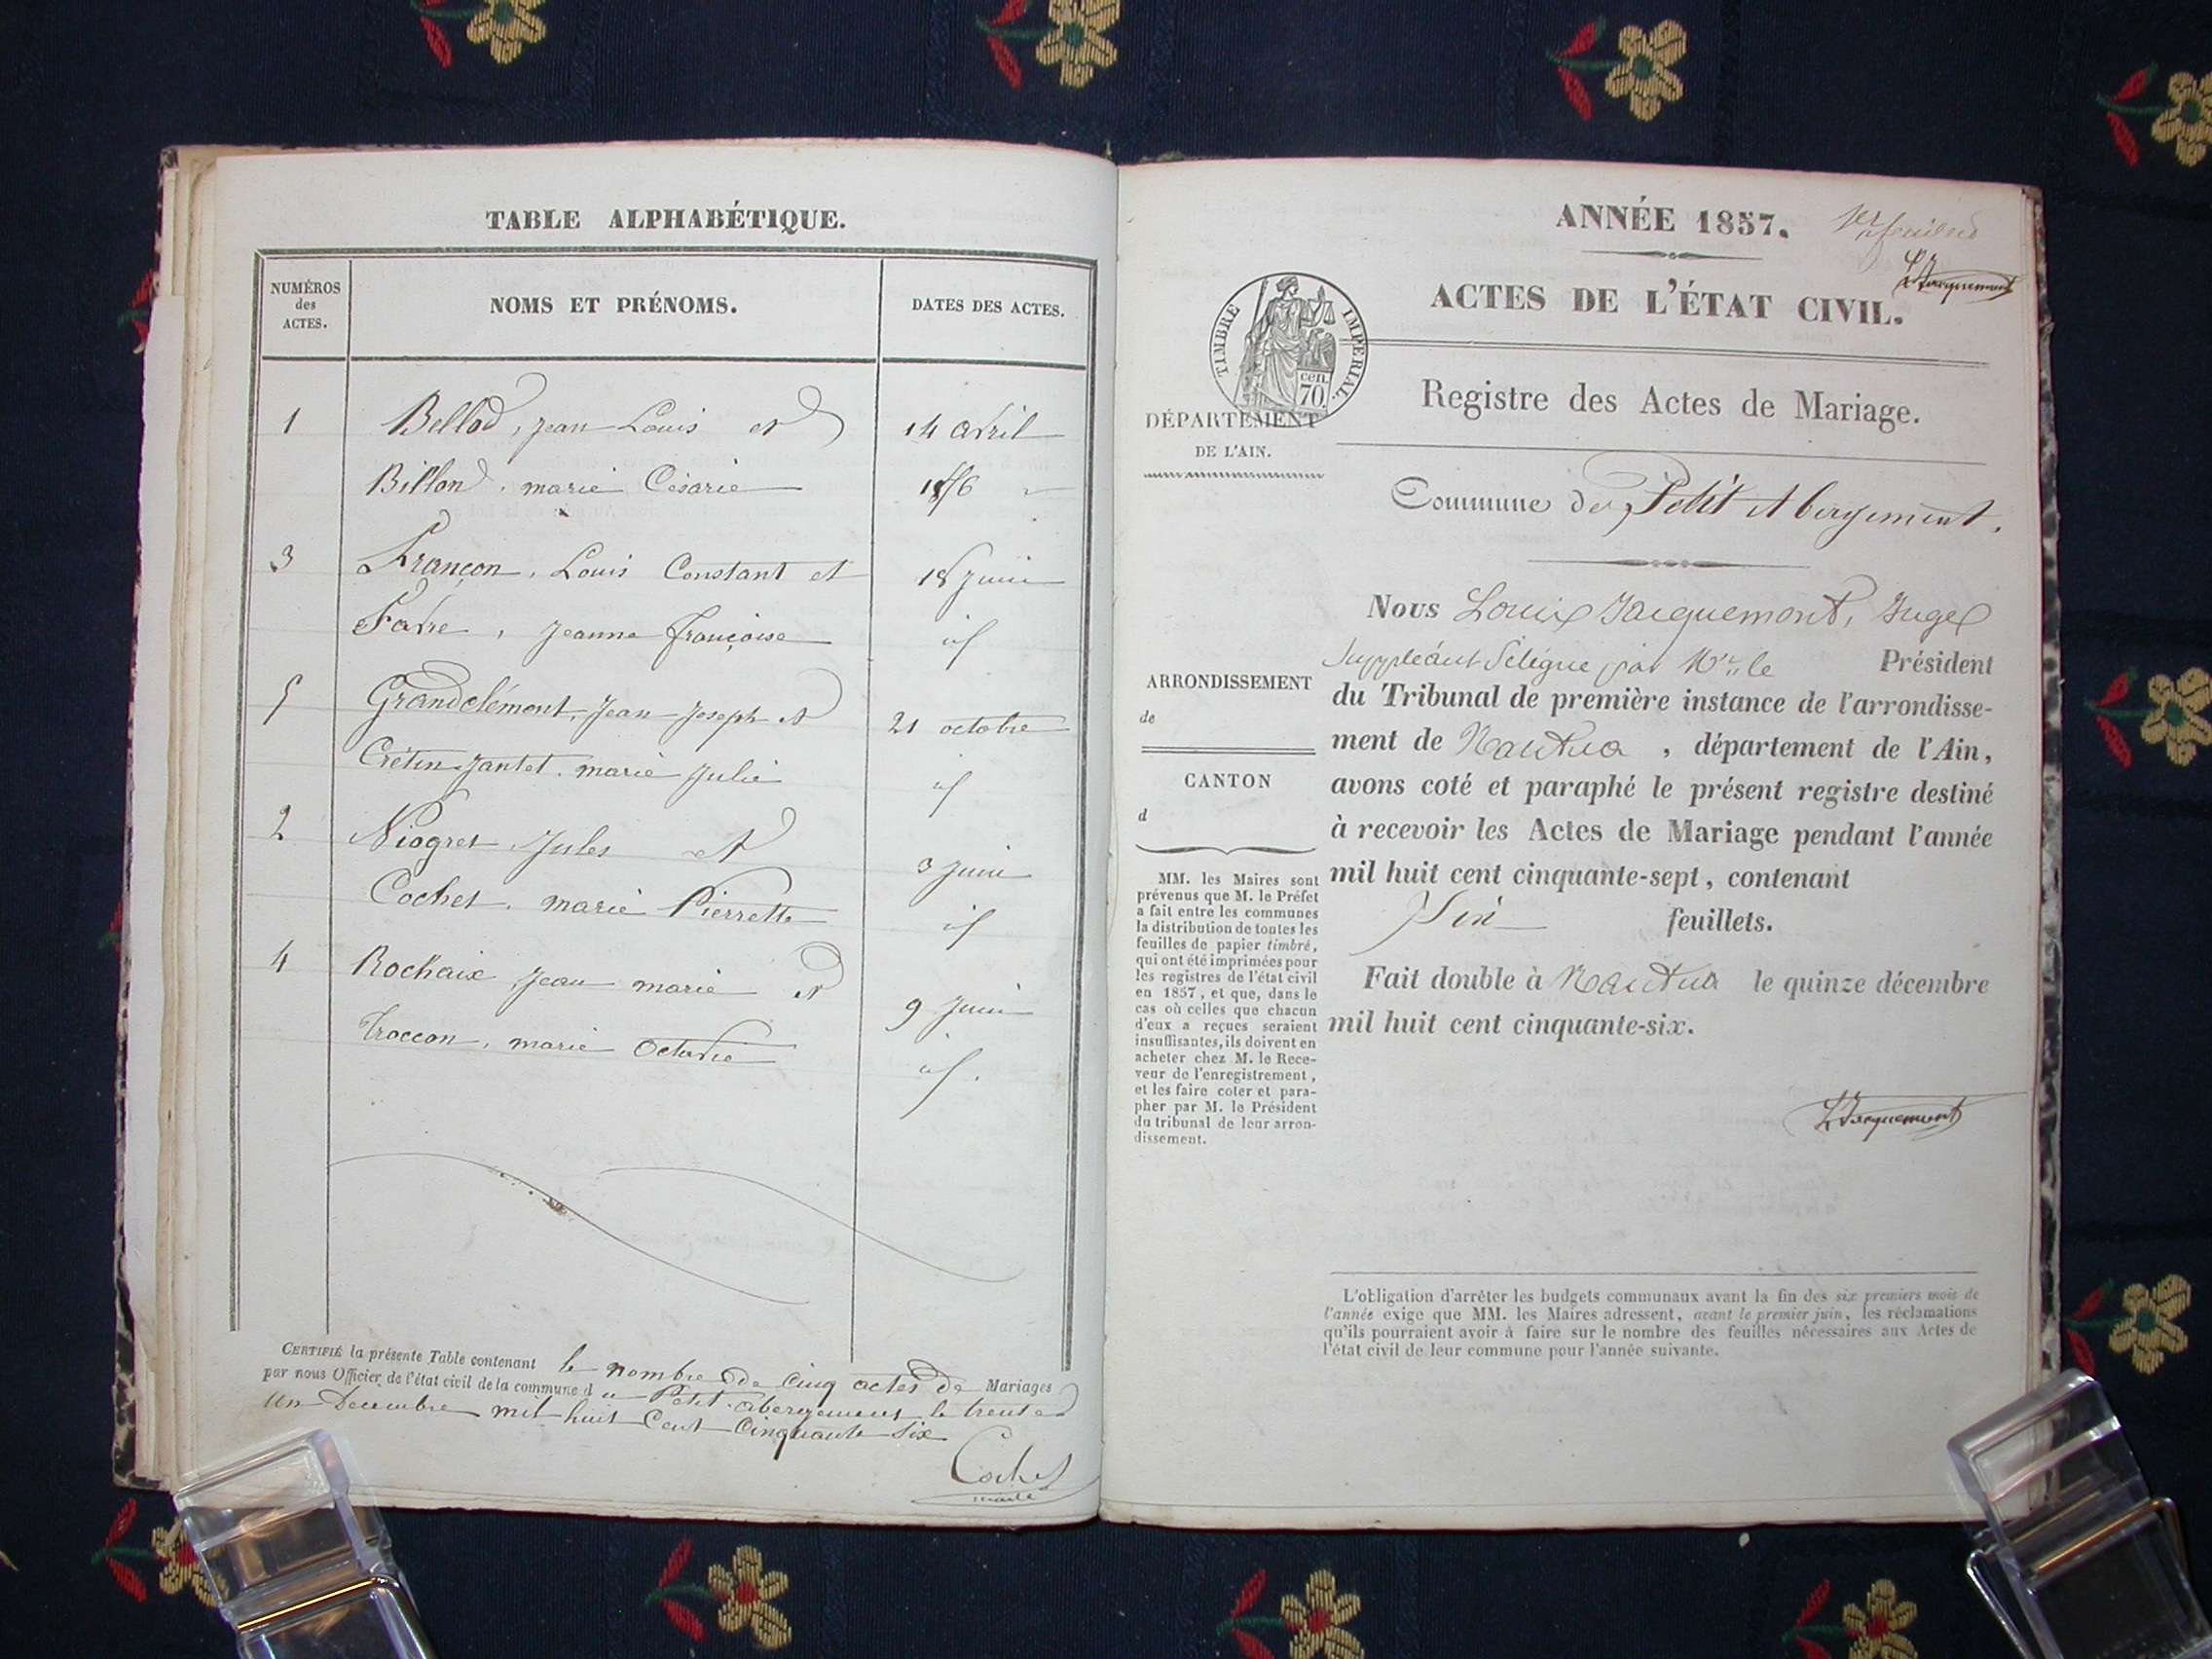 TABLE ALPHABÉTIQUE.
NUMÉROS
des
ACTES.
NOMS ET PRÉNOMS.
DATES DES ACTES.
1 Bellod, Jean Louis et 14 avril
Billond, marie Césarie 1856
3 Françon, Louis Constant et 18 juin
Favre, Jeanne françoise id
5 Grandclément, Jean Joseph et 21 octobre
Crétin-Jantet, marie Julie id
2 Niogret Jules et 3 juin
Cochet, marie Pierrette id
4 Rochaix Jean marie et 9 juin
Troccon, marie Octavie id.
CERTIFIÉ la présente Table contenant le nombre de Cinq actes de Mariages
par nous Officier de l'état civil de la commune du Petit-abergement le trente
un Décembre mil huit Cent Cinquante Six
Cochet
maire
ANNÉE 1857.
1er feuillet
LJacquemont
ACTES DE L'ÉTAT CIVIL.
TIMBRE IMPÉRIAL.
cen.
70.
Registre des Actes de Mariage.
DÉPARTEMENT
DE L'AIN.
Commune de Petit Abergement.
Nous Louis Jacquemont, Juge
Suppléant délégué par Mr. le Président
du Tribunal de première instance de l'arrondisse-
ment de Nantua, département de l'Ain,
avons coté et paraphé le présent registre destiné
à recevoir les Actes de Mariage pendant l'année
mil huit cent cinquante-sept, contenant
Six feuillets.
Fait double à Nantua le quinze décembre
mil huit cent cinquante-six.
LJacquemont
ARRONDISSEMENT
de
CANTON
d
MM. les Maires sont
prévenus que M. le Préfet
a fait entre les communes
la distribution de toutes les
feuilles de papier timbré,
qui ont été imprimées pour
les registres de l'état civil
en 1857, et que, dans le
cas où celles que chacun
d'eux a reçues seraient
insuffisantes, ils doivent en
acheter chez M. le Rece-
veur de l'enregistrement,
et les faire coter et para-
pher par M. le Président
du tribunal de leur arron-
dissement.
L'obligation d'arrêter les budgets communaux avant la fin des six premiers mois de
l'année exige que MM. les Maires adressent, avant le premier juin, les réclamations
qu'ils pourraient avoir à faire sur le nombre des feuilles nécessaires aux Actes de
l'état civil de leur commune pour l'année suivante.